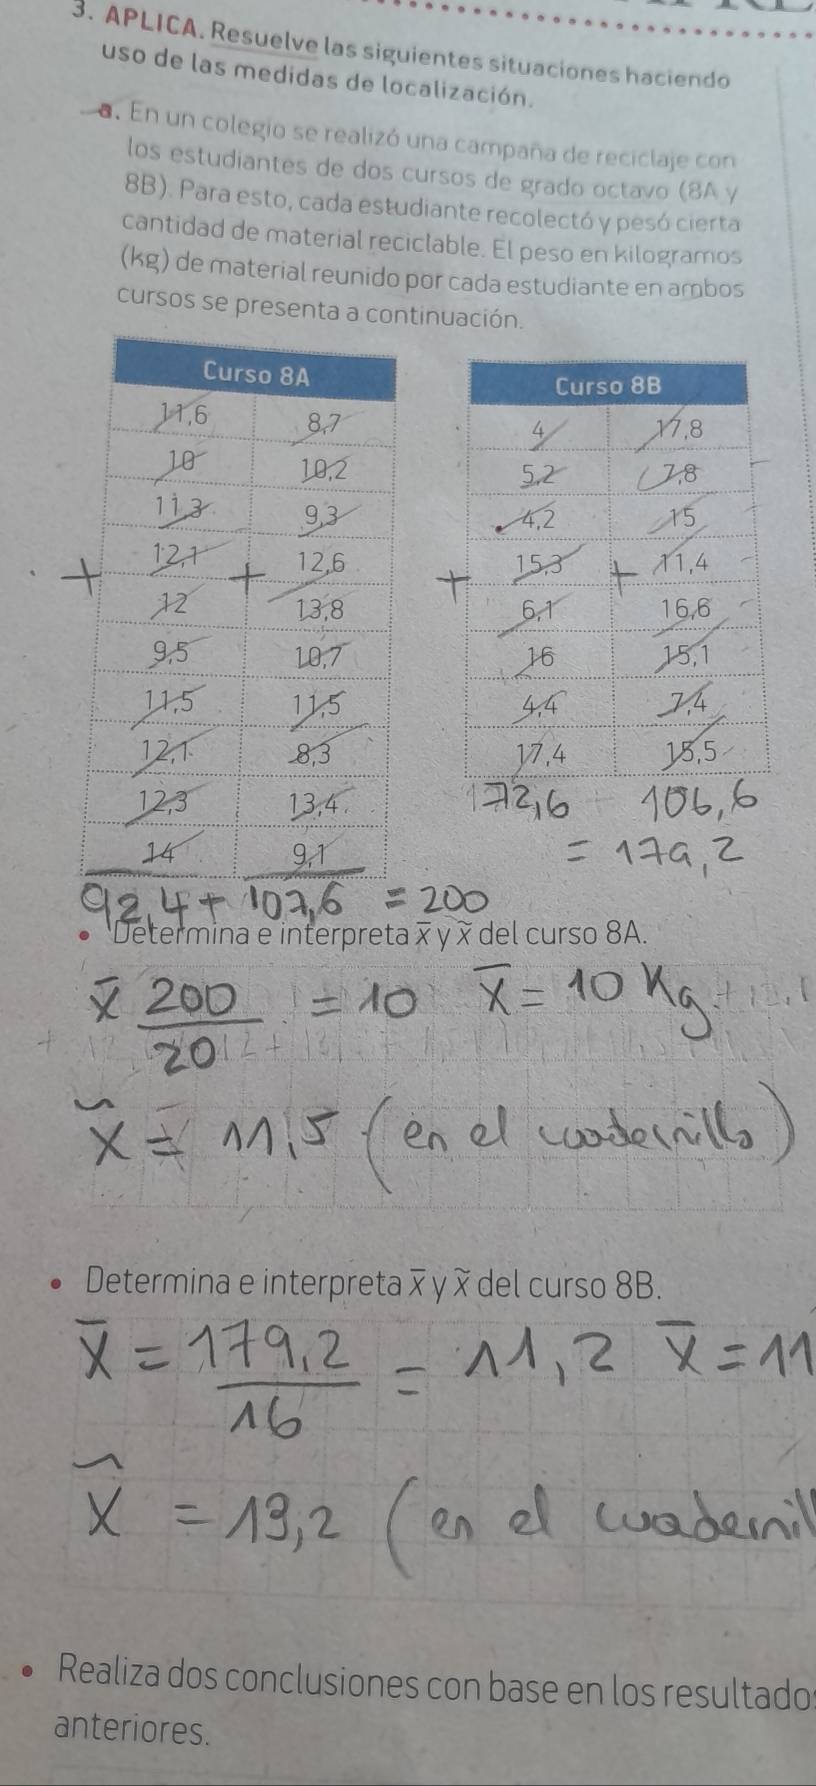 3. APLICA. Resuelve las siguientes situaciones haciendo
uso de las medidas de localización.
a. En un colegio se realizó una campaña de reciclaje con
los estudiantes de dos cursos de grado octavo (8A y
8B). Para esto, cada estudiante recolectó y pesó cierta
cantidad de material reciclable. El peso en kilogramos
(kg) de material reunido por cada estudiante en ambos
cursos se presenta a continuación.
Curso 8A
11,6 8,7
10 10,2
11,3 9,3
12,1 12,6
+ 12 + 13,8
9,5 10,7
11,5 11,5
12,1 8,3
12,3 13,4
14 9,1
92,4 + 107,6 = 200
Curso 8B
4 17,8
5,2 7,8
4,2 15
15,3 11,4
+ 6,1 + 16,6
16 15,1
4,4 7,4
17,4 15,5
172,6 106,6
= 179,2
• Determina e interpreta x̄ y x̃ del curso 8A.
x̄ 200 = 10 x̄ = 10 Kg
20
x̃ = 11,5 (en el cuadernillo)
• Determina e interpreta x̄ y x̃ del curso 8B.
x̄ = 179,2 = 11,2 x̄ = 11
16
x̃ = 13,2 (en el cuadernill
• Realiza dos conclusiones con base en los resultados
anteriores.